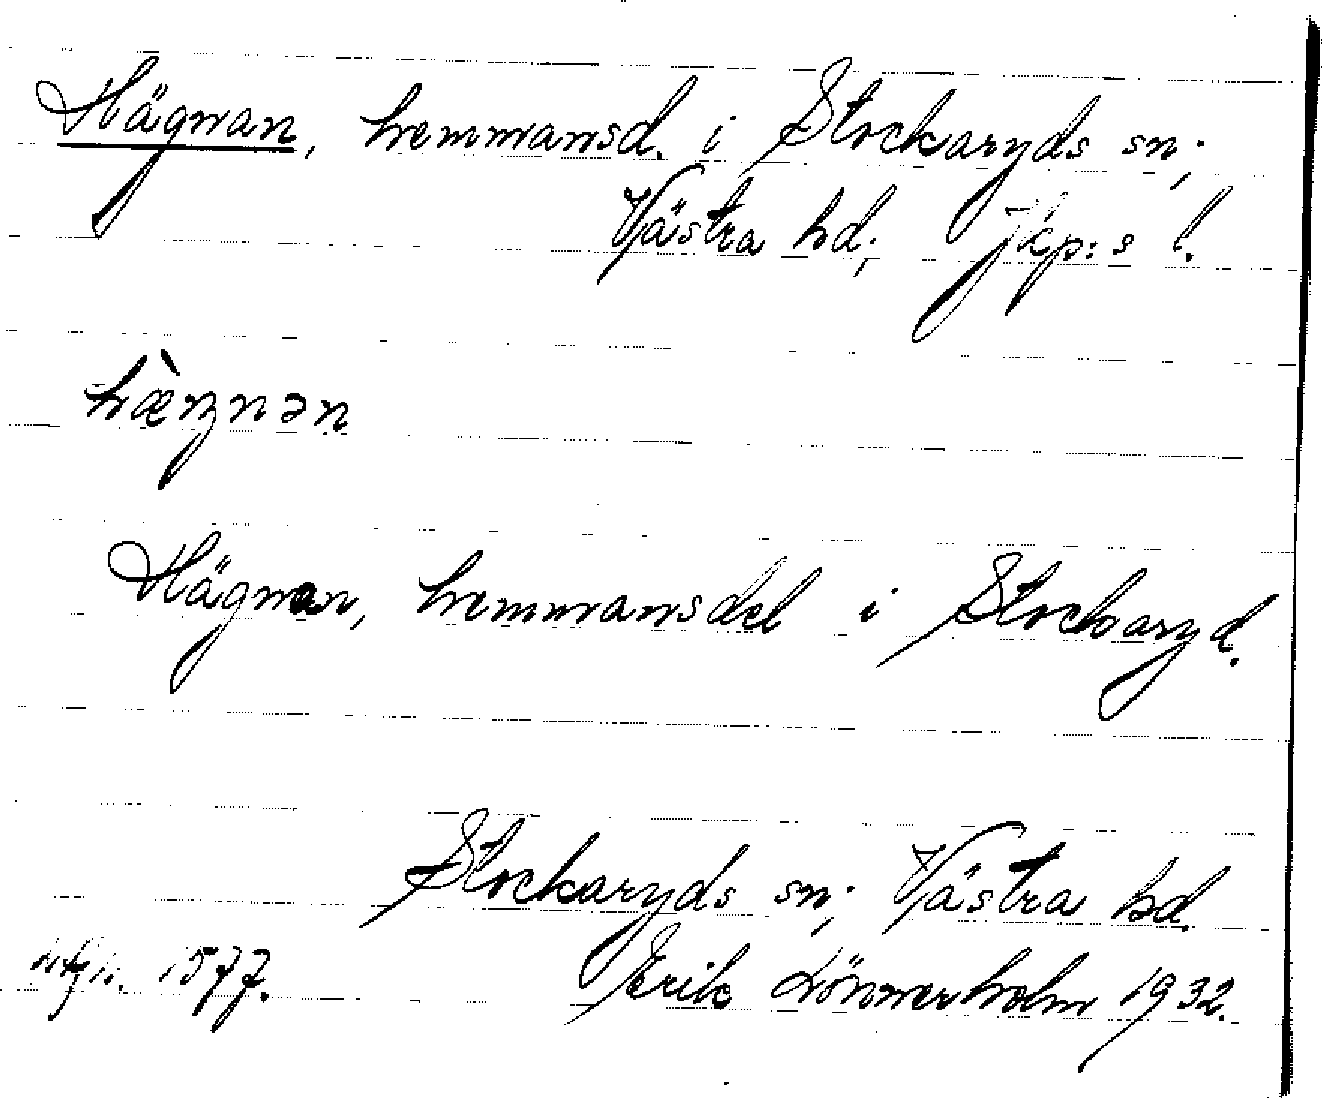 Hägnan, hemmansd. i Stockaryds sn;
Västra hd; Jkp:s l.
hæ̀ŋnən
Hägnan, hemmansdel i Stockaryd.
Stockaryds sn; Västra hd.
1577. Erik Lönnerholm 1932.